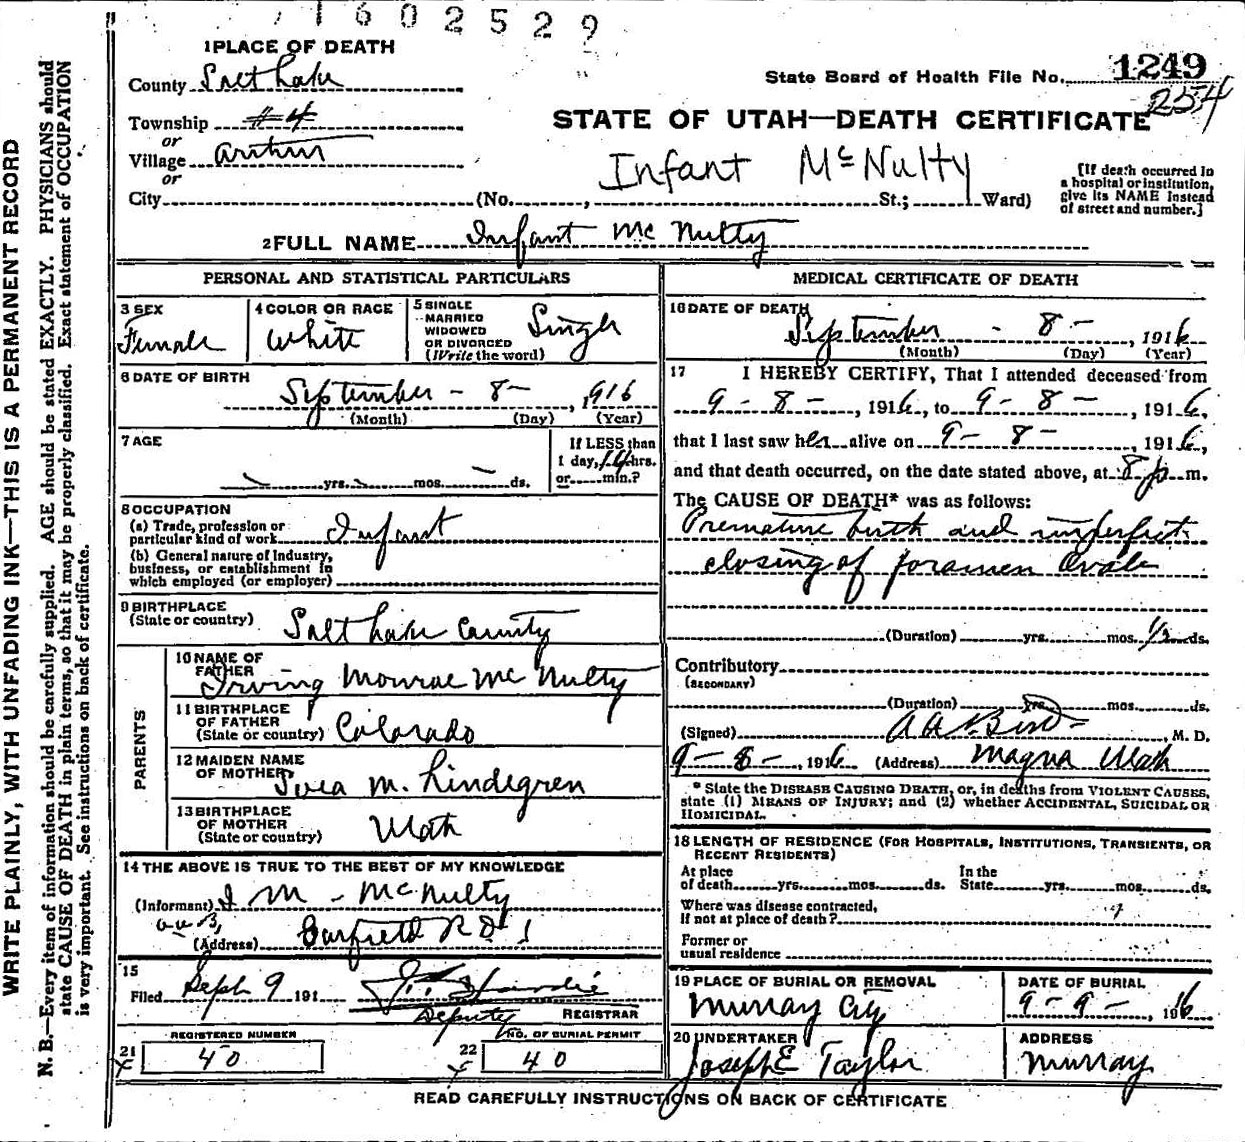 1602529
1 PLACE OF DEATH
County Salt Lake
State Board of Health File No. 1249
254
Township #4
or
STATE OF UTAH—DEATH CERTIFICATE
Village Arthur
or
Infant McNulty
City (No. , St.; Ward)
[If death occurred in
a hospital or institution,
give its NAME instead
of street and number.]
2 FULL NAME Infant McNulty
PERSONAL AND STATISTICAL PARTICULARS
3 SEX
Female
4 COLOR OR RACE
White
5 SINGLE
MARRIED
WIDOWED
OR DIVORCED
(Write the word)
Single
6 DATE OF BIRTH
September - 8 - , 1916
(Month) (Day) (Year)
7 AGE
yrs. mos. ds.
If LESS than
1 day, 14 hrs.
or min.?
8 OCCUPATION
(a) Trade, profession or
particular kind of work Infant
(b) General nature of Industry,
business, or establishment in
which employed (or employer)
9 BIRTHPLACE
(State or country) Salt Lake County
PARENTS
10 NAME OF
FATHER Irving Monroe McNulty
11 BIRTHPLACE
OF FATHER
(State or country) Colorado
12 MAIDEN NAME
OF MOTHER Svea M. Lindegren
13 BIRTHPLACE
OF MOTHER
(State or country) Utah
14 THE ABOVE IS TRUE TO THE BEST OF MY KNOWLEDGE
(Informant) I M - McNulty
(Address) Garfield R D 1
15
Filed Sept 9 191
Deputy REGISTRAR
REGISTERED NUMBER
21 40
NO. OF BURIAL PERMIT
22 40
MEDICAL CERTIFICATE OF DEATH
16 DATE OF DEATH
September - 8 - , 1916
(Month) (Day) (Year)
17 I HEREBY CERTIFY, That I attended deceased from
9 - 8 - , 1916, to 9 - 8 - , 1916,
that I last saw her alive on 9 - 8 - , 1916,
and that death occurred, on the date stated above, at 8 p m.
The CAUSE OF DEATH* was as follows:
Premature birth and imperfect
closing of foramen Ovale
(Duration) yrs. mos. 1/2 ds.
Contributory
(SECONDARY)
(Duration) yrs. mos. ds.
(Signed) , M. D.
9 - 8 - , 1916 (Address) Magna Utah
* State the DISEASE CAUSING DEATH, or, in deaths from VIOLENT CAUSES,
state (1) MEANS OF INJURY; and (2) whether ACCIDENTAL, SUICIDAL OR
HOMICIDAL.
18 LENGTH OF RESIDENCE (FOR HOSPITALS, INSTITUTIONS, TRANSIENTS, OR
RECENT RESIDENTS)
At place
of death yrs. mos. ds.
In the
State yrs. mos. ds.
Where was disease contracted,
if not at place of death?
Former or
usual residence
19 PLACE OF BURIAL OR REMOVAL
Murray City
DATE OF BURIAL
9 - 9 - , 1916
20 UNDERTAKER
Joseph E Taylor
ADDRESS
Murray
READ CAREFULLY INSTRUCTIONS ON BACK OF CERTIFICATE
WRITE PLAINLY, WITH UNFADING INK—THIS IS A PERMANENT RECORD
N. B.—Every item of information should be carefully supplied. AGE should be stated EXACTLY. PHYSICIANS should
state CAUSE OF DEATH in plain terms, so that it may be properly classified. Exact statement of OCCUPATION
is very important. See instructions on back of certificate.